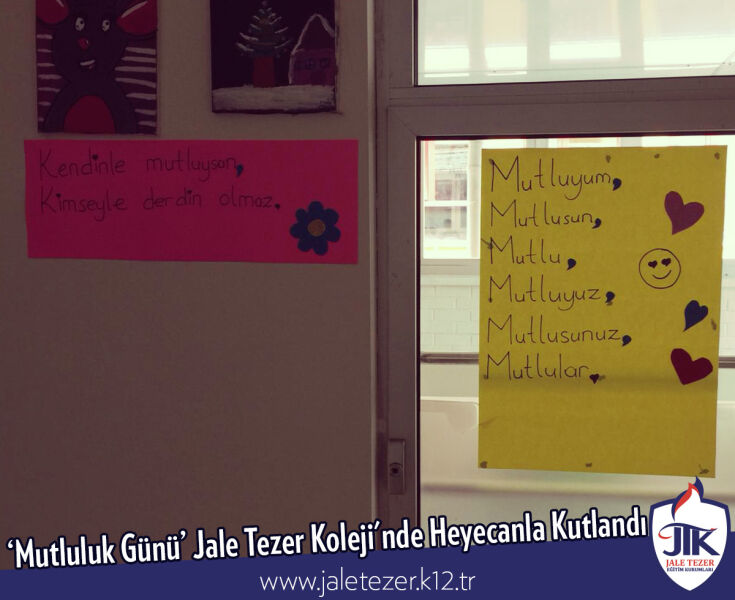 Kendinle mutluysan,
Kimseyle derdin olmaz.
Mutluyum,
Mutlusun,
Mutlu,
Mutluyuz,
Mutlusunuz,
Mutlular.
‘Mutluluk Günü’ Jale Tezer Koleji´nde Heyecanla Kutlandı
JTK
JALE TEZER
EĞİTİM KURUMLARI
www.jaletezer.k12.tr